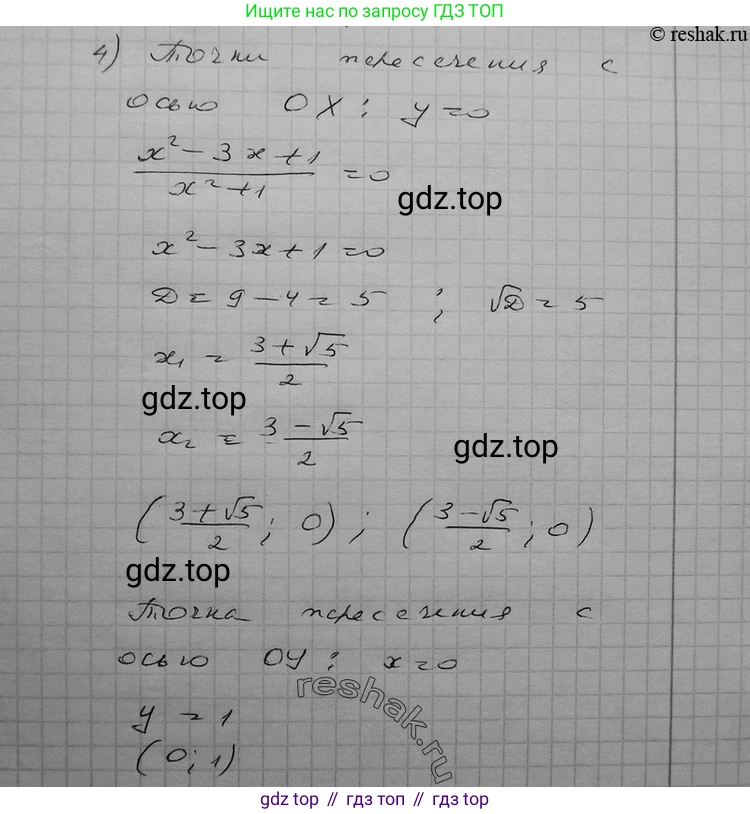 Ищите нас по запросу ГДЗ ТОП
© reshak.ru
4) Точки пересечения с
осью OX: y=0
x²-3x+1/x²+1=0
gdz.top
x²-3x+1=0
D=9-4=5; √D=5
x₁=3+√5/2
gdz.top
x₂=3-√5/2
gdz.top
(3+√5/2; 0); (3-√5/2; 0)
gdz.top
Точка пересечения с
осью OY: x=0
reshak.ru
y=1
(0; 1)
gdz top // гдз топ // gdz top